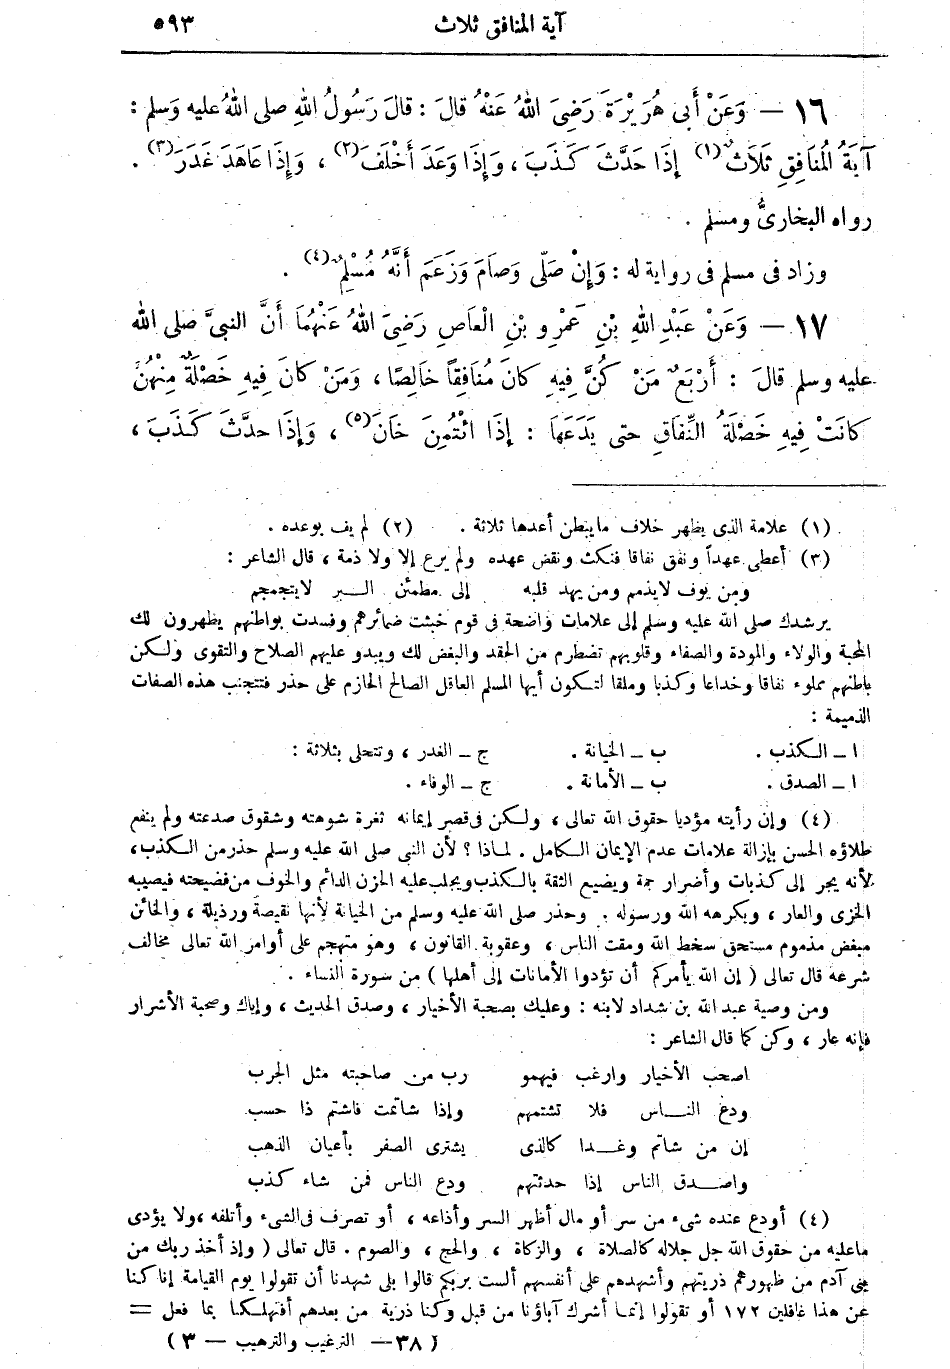 آية المنافق ثلاث ٥٩٣
١٦ — وَعَنْ أَبِى هُرَيْرَةَ رَضِىَ اللهُ عَنْهُ قَالَ : قَالَ رَسُولُ اللهِ صلى اللهُ عليه وَسلم :
آيَةُ الْمُنَافِقِ ثَلَاثٌ(١) إِذَا حَدَّثَ كَذَبَ ، وَإِذَا وَعَدَ أَخْلَفَ(٢) ، وَإِذَا عَاهَدَ غَدَرَ(٣) .
رواه البخارىُّ ومسلم .
وزاد فى مسلم فى رواية له : وَإِنْ صَلَّى وَصَامَ وَزَعَمَ أَنَّهُ مُسْلِمٌ(٤) .
١٧ — وَعَنْ عَبْدِ اللهِ بْنِ عَمْرِو بْنِ الْعَاصِ رَضِىَ اللهُ عَنْهُمَا أَنَّ النبىَّ صلى الله
عليه وسلم قَالَ : أَرْبَعٌ مَنْ كُنَّ فِيهِ كَانَ مُنَافِقاً خَالِصًا ، وَمَنْ كَانَ فِيهِ خَصْلَةٌ مِنْهُنَّ
كَانَتْ فِيهِ خَصْلَةُ النِّفَاقِ حتى يَدَعَهَا : إِذَا ائْتُمِنَ خَانَ(٥) ، وَإِذَا حدَّثَ كَذَبَ ،
(١) علامة الذى يظهر خلاف ما يبطن أعدها ثلاثة . (٢) لم يف بوعده .
(٣) أعطى عهداً ونفق نفاقا فنكث ونقض عهده ولم يرع إلا ولا ذمة ، قال الشاعر :
ومن يوف لا يذمم ومن يهد قلبه إلى مطمئن البر لا يتجمجم
يرشدك صلى الله عليه وسلم إلى علامات واضحة فى قوم خبثت ضمائرهم وفسدت بواطنهم يظهرون لك
المحبة والولاء والمودة والصفاء وقلوبهم تضطرم من الحقد والبغض لك ويبدو عليهم الصلاح والتقوى ولكن
باطنهم مملوء نفاقا وخداعا وكذبا وملقا لتكون أيها المسلم العاقل الصالح الحازم على حذر فتتجنب هذه الصفات
الذميمة :
ا ــ الكذب . ب ــ الخيانة . ج ــ الغدر ، وتتحلى بثلاثة :
ا ــ الصدق . ب ــ الأمانة . ج ــ الوفاء .
(٤) وإن رأيته مؤديا حقوق الله تعالى ، ولكن فى قصر إيمانه ثغرة شوهته وشقوق صدعته ولم ينفع
طلاؤه الحسن بإزالة علامات عدم الإيمان الكامل . لماذا ؟ لأن النبى صلى الله عليه وسلم حذر من الكذب ،
لأنه يجر إلى كذبات وأضرار جمة ويضيع الثقة بالكذب ويجلب عليه الحزن الدائم والخوف من فضيحته فيصيبه
الخزى والعار ، ويكرهه الله ورسوله . وحذر صلى الله عليه وسلم من الخيانة لأنها نقيصة ورذيلة ، والخائن
مبغض مذموم مستحق سخط الله ومقت الناس ، وعقوبة القانون ، وهو متهجم على أوامر الله تعالى مخالف
شرعه قال تعالى ( إن الله يأمركم أن تؤدوا الأمانات إلى أهلها ) من سورة النساء .
ومن وصية عبد الله بن شداد لابنه : وعليك بصحبة الأخيار ، وصدق الحديث ، وإياك وصحبة الأشرار
فإنه عار ، وكن كما قال الشاعر :
اصحب الأخيار وارغب فيهمو رب من صاحبته مثل الجرب
ودع الناس فلا تشتمهم وإذا شاتمت فاشتم ذا حسب
إن من شاتم وغدا كالذى يشترى الصفر بأعيان الذهب
واصدق الناس إذا حدثتهم ودع الناس فمن شاء كذب
(٤) أودع عنده شىء من سر أو مال أظهر السر وأذاعه ، أو تصرف فى الشىء وأتلفه ، ولا يؤدى
ما عليه من حقوق الله جل جلاله كالصلاة ، والزكاة ، والحج ، والصوم . قال تعالى ( وإذ أخذ ربك من
بنى آدم من ظهورهم ذريتهم وأشهدهم على أنفسهم ألست بربكم قالوا بلى شهدنا أن تقولوا يوم القيامة إنا كنا
عن هذا غافلين ١٧٢ أو تقولوا إنما أشرك آباؤنا من قبل وكنا ذرية من بعدهم أفتهلكنا بما فعل =
( ٣٨ — الترغيب والترهيب — ٣ )